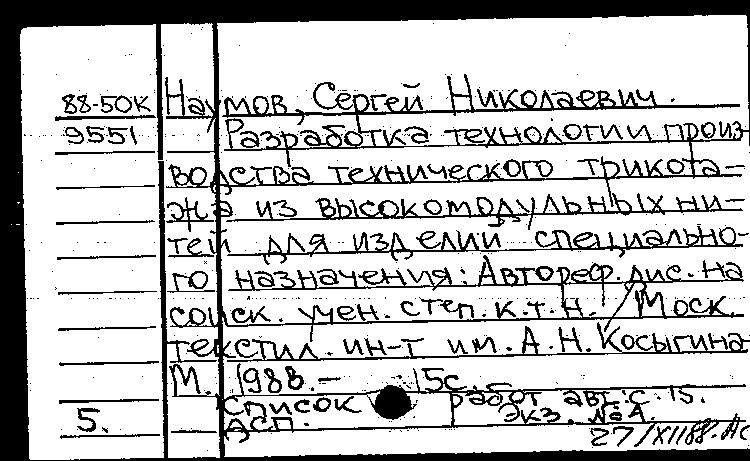 88-50К Наумов, Сергей Николаевич.
9551 Разработка технологии произ-
водства технического трикота-
жа из высокомодульных ни-
тей для изделий специально-
го назначения: Автореф. дис. на
соиск. учен. степ. к.т.н. / Моск.
текстил. ин-т им. А.Н. Косыгина
М., 1988.- 15с.
Список работ авт.: с. 15.
5. ДСП. Экз. №
27/XII88.